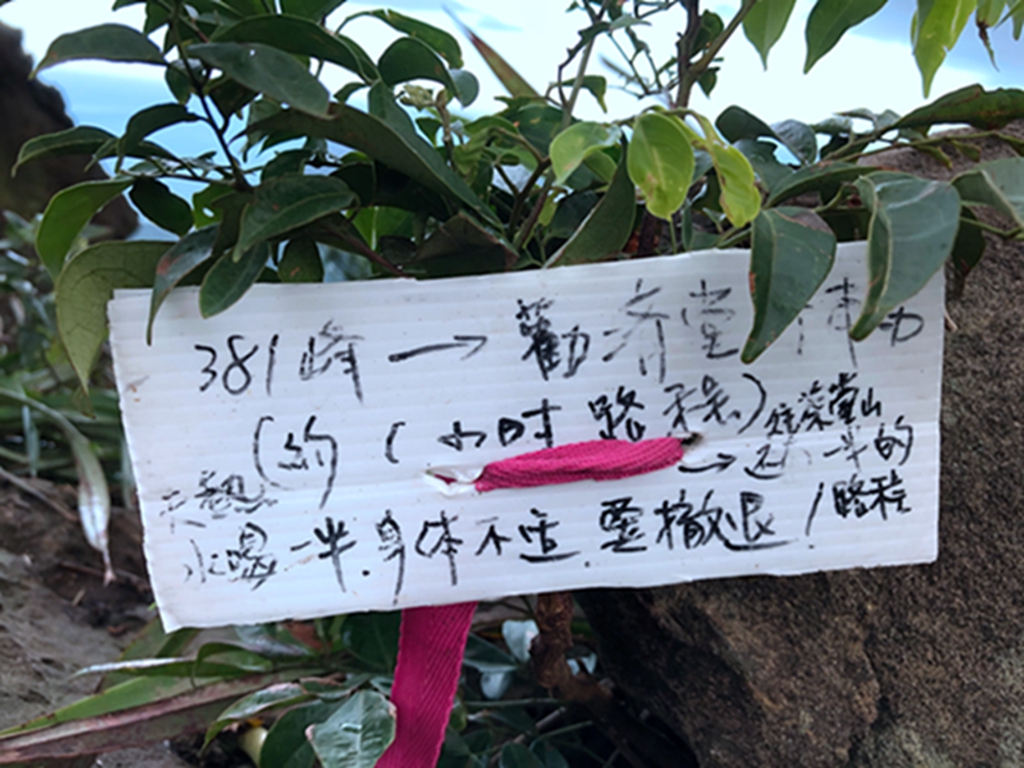 381峰→勸濟堂
(約1小時路程)
往茶壺山
→还一半的
路程
水喝一半.身体不适.要撤退!